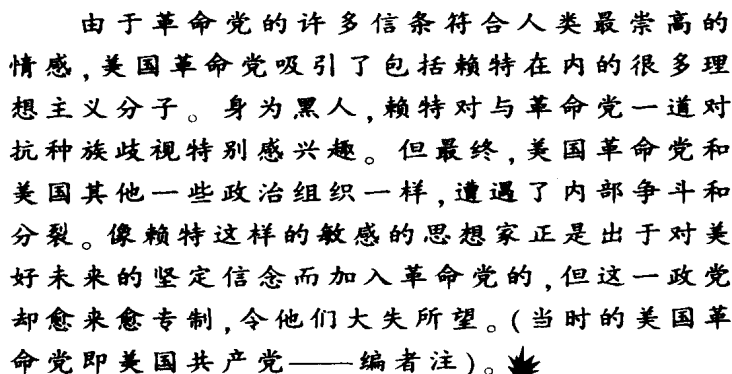 由于革命党的许多信条符合人类最崇高的
情感,美国革命党吸引了包括赖特在内的很多理
想主义分子。身为黑人,赖特对与革命党一道对
抗种族歧视特别感兴趣。但最终,美国革命党和
美国其他一些政治组织一样,遭遇了内部争斗和
分裂。像赖特这样的敏感的思想家正是出于对美
好未来的坚定信念而加入革命党的,但这一政党
却愈来愈专制,令他们大失所望。(当时的美国革
命党即美国共产党——编者注)。